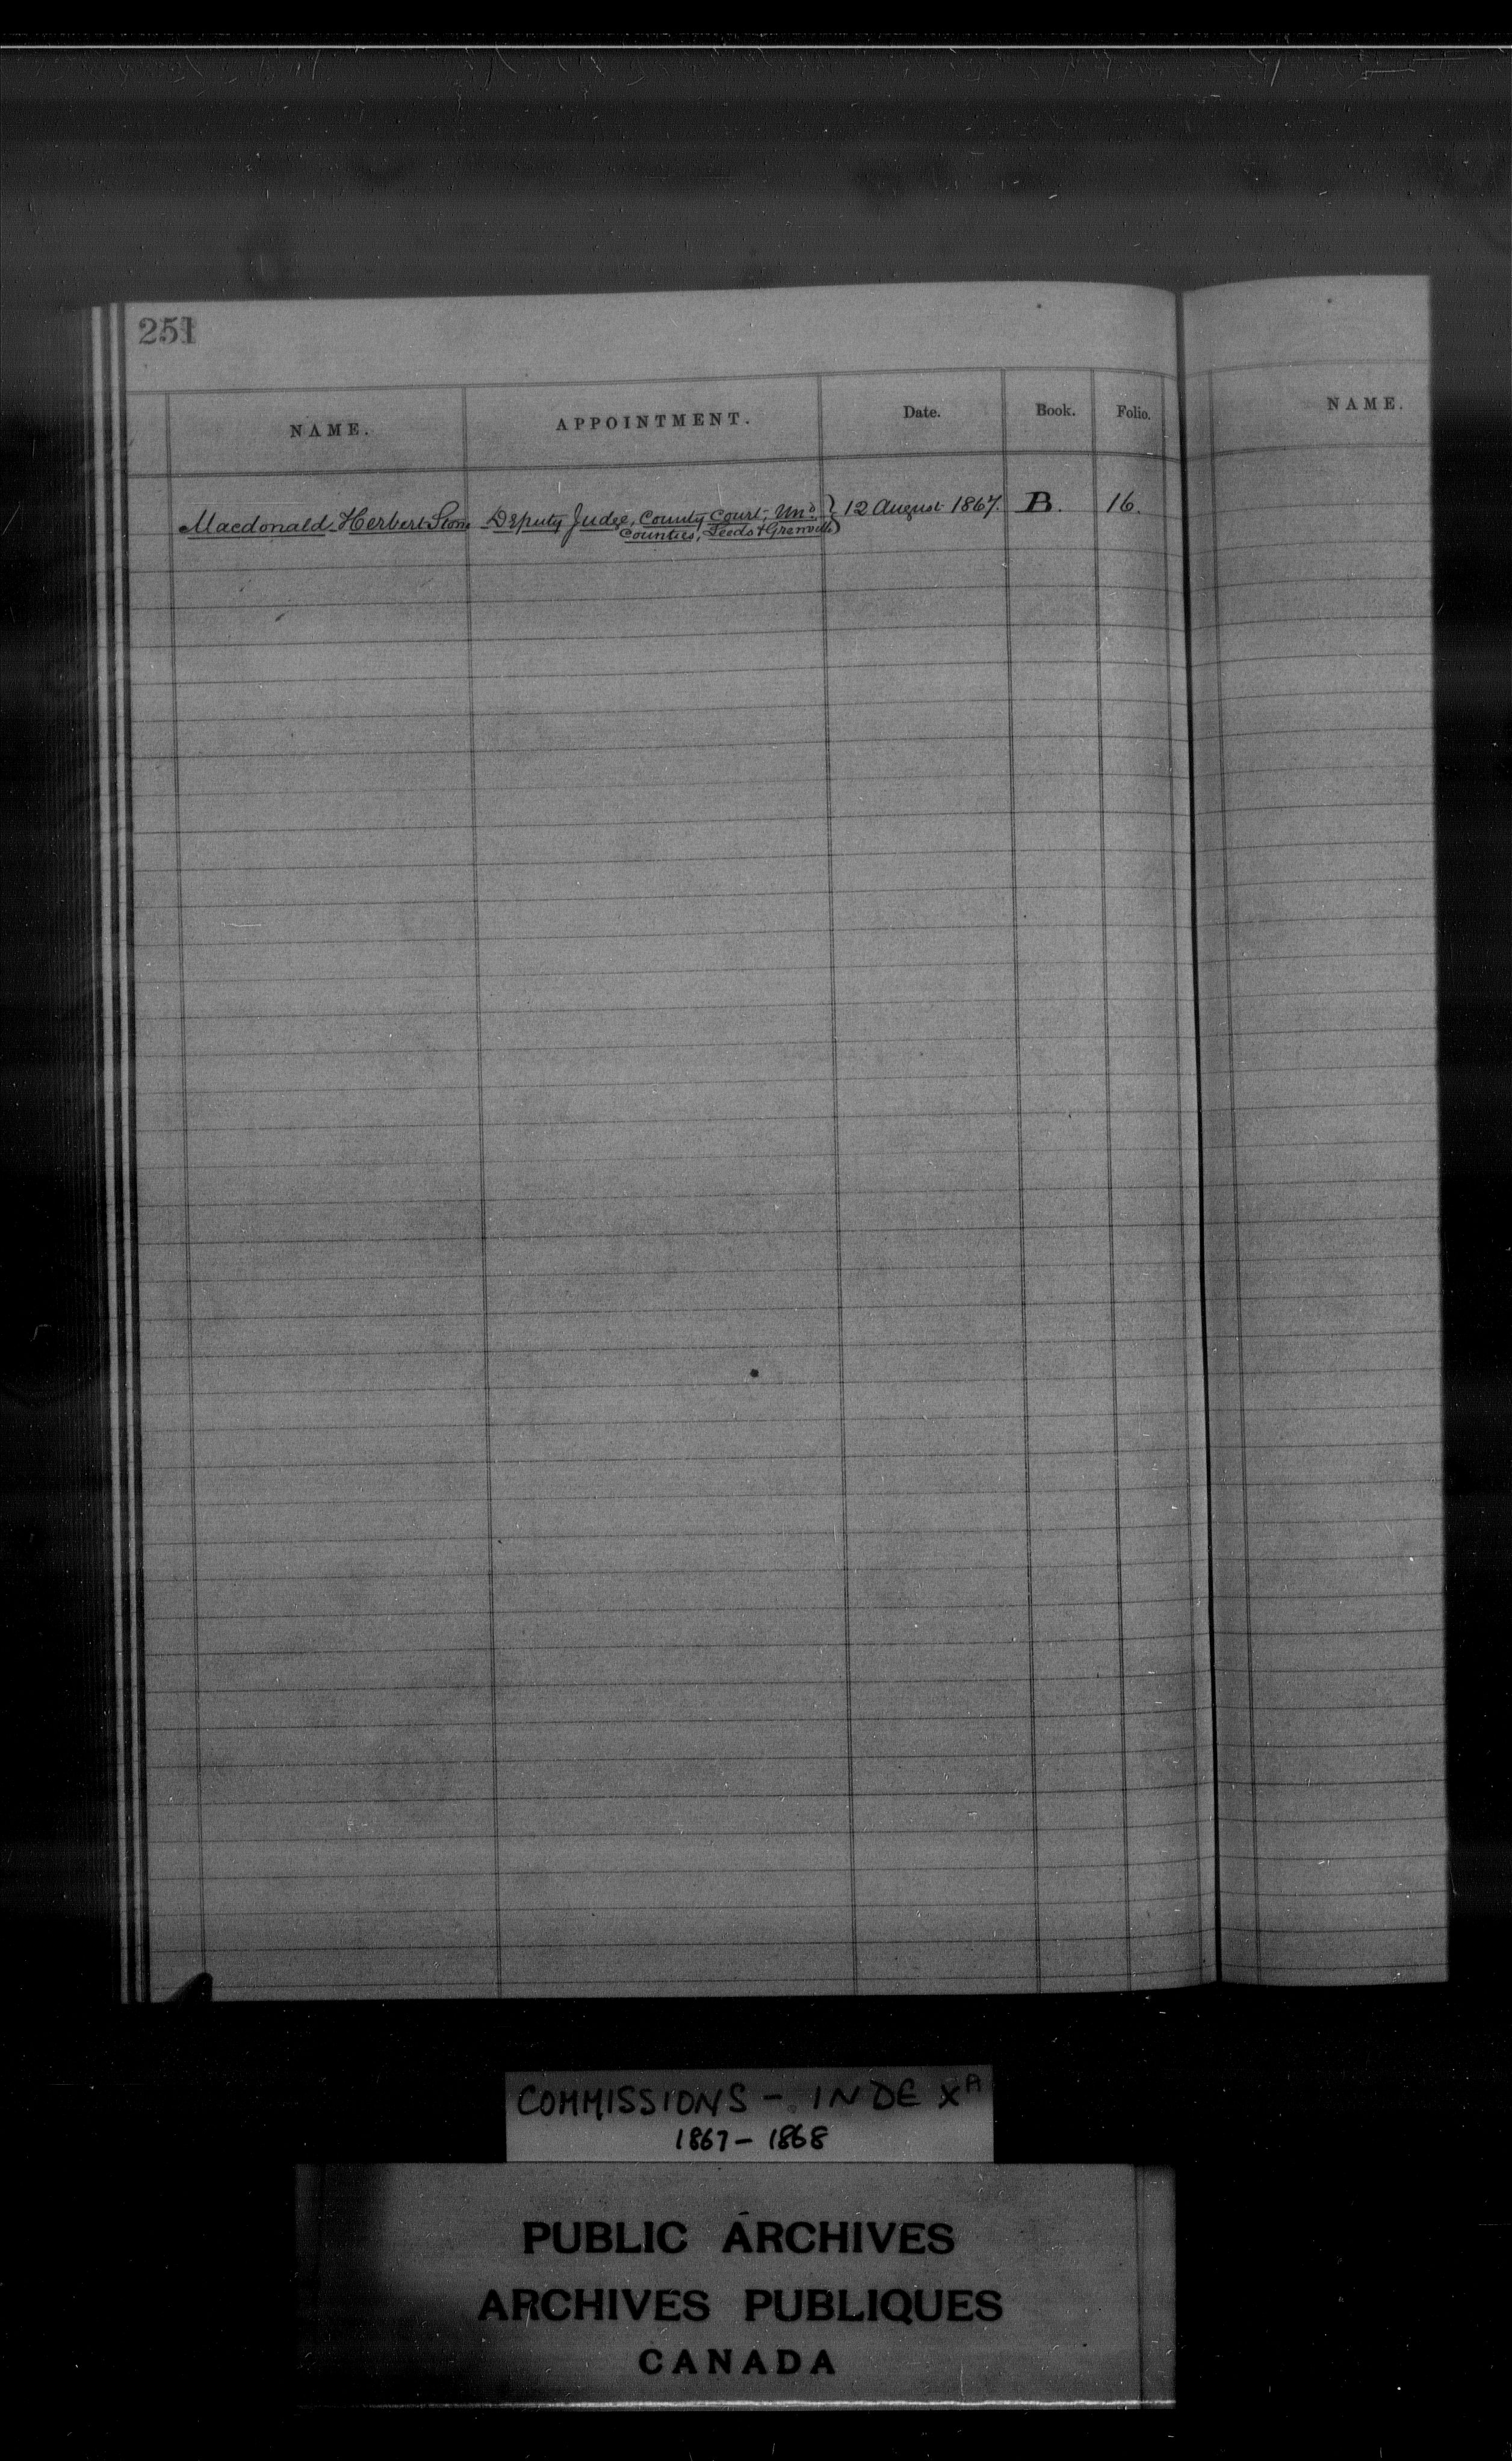 251
NAME. APPOINTMENT. Date. Book. Folio. NAME.
Macdonald, Herbert Stone Deputy Judge, County Court, Un'd } 12 August 1867. B. 16.
Counties, Leeds & Grenville
COMMISSIONS - INDEX A
1867 - 1868
PUBLIC ARCHIVES
ARCHIVES PUBLIQUES
CANADA